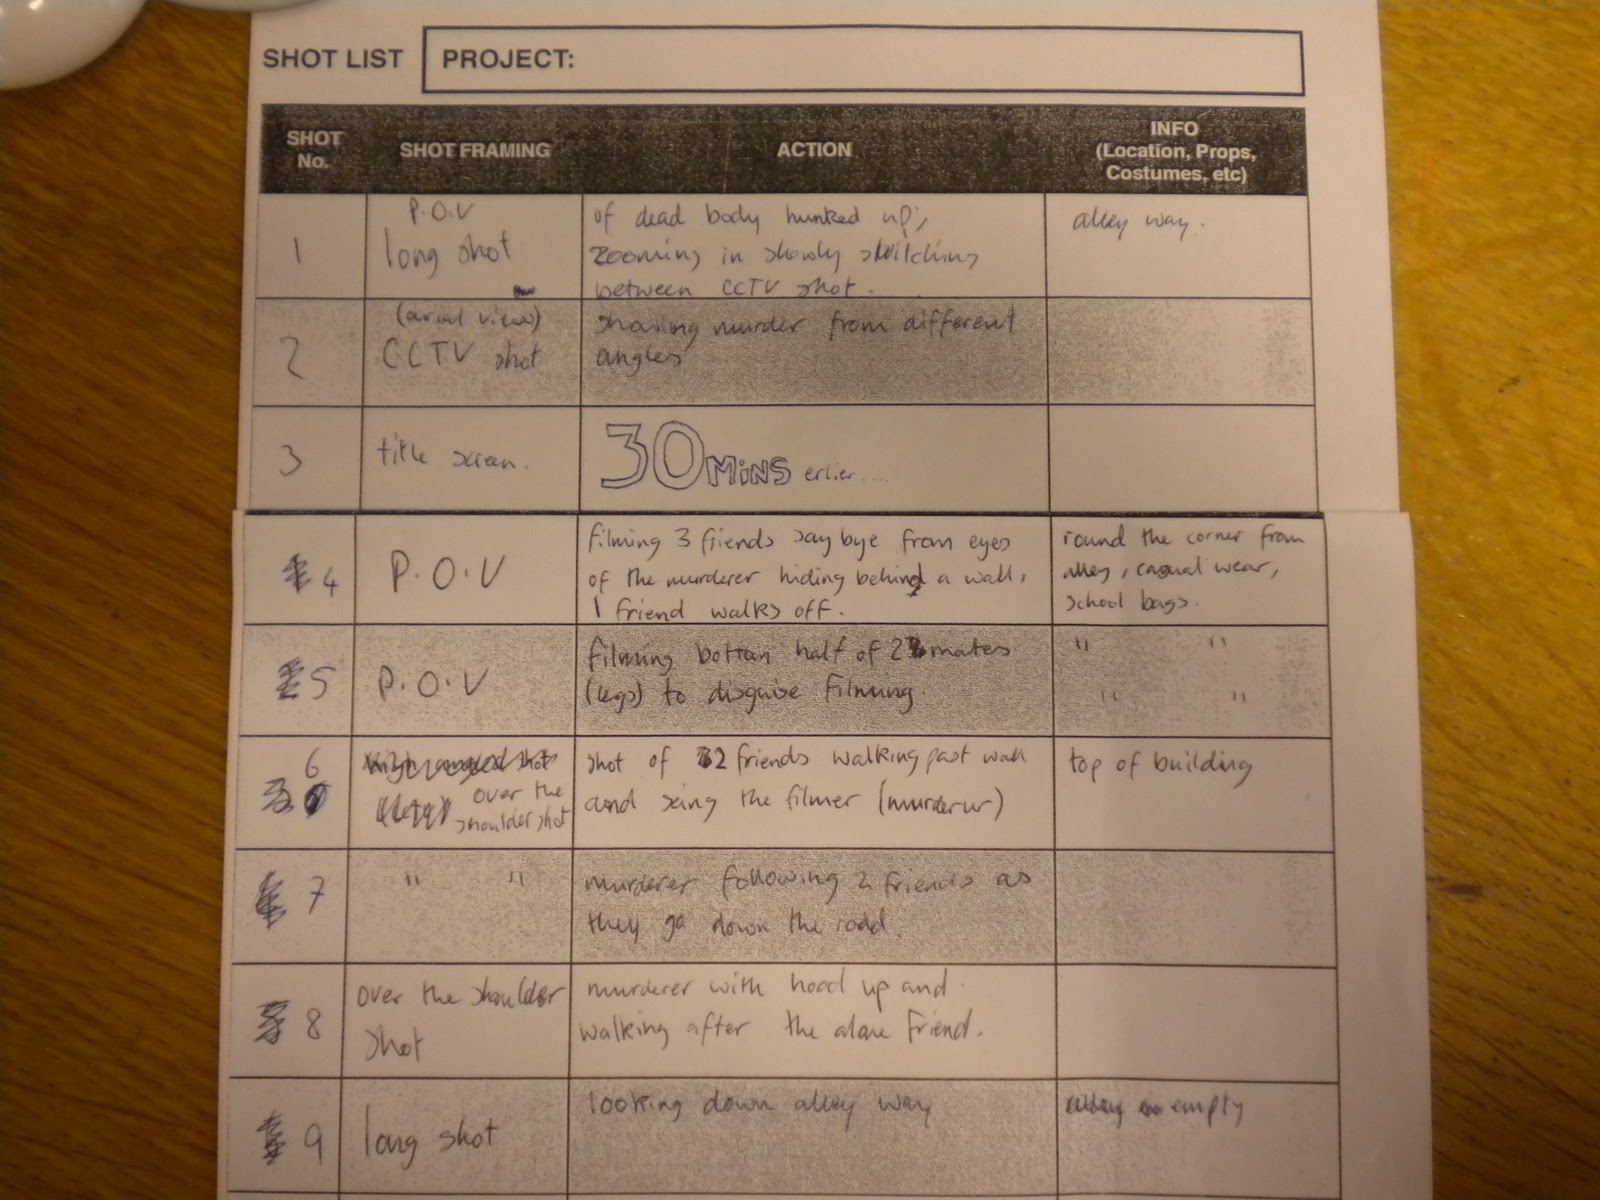 SHOT LIST
PROJECT:
SHOT No.
SHOT FRAMING
ACTION
INFO
(Location, Props,
Costumes, etc)
1
P.O.V
long shot
of dead body hunked up,
zooming in slowly switching
between CCTV shot.
alley way.
2
(arial view)
CCTV shot
showing murder from different
angles
3
title screen.
30 MiNS erlier...
4
P.O.V
filming 3 friends say bye from eyes
of the murderer hiding behind a wall,
1 friend walks off.
round the corner from
alley, casual wear,
school bags.
5
P.O.V
filming bottom half of 2 mates
(legs) to disguise filming.
" "
" "
6
over the
shoulder shot
shot of 2 friends walking past wall
and seing the filmer (murderur)
top of building
7
" "
murderer following 2 friends as
they go down the road.
8
over the shoulder
shot
murderer with hood up and
walking after the alone friend.
9
long shot
looking down alley way
empty